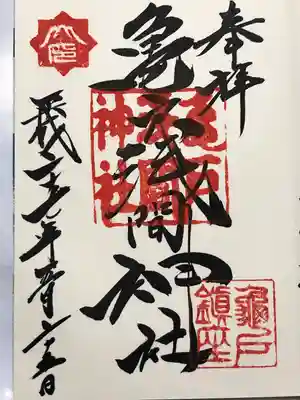 奉拝
亀戸浅間神社
亀戸浅間神社
亀戸鎮座
平成二十七年一月二十五日